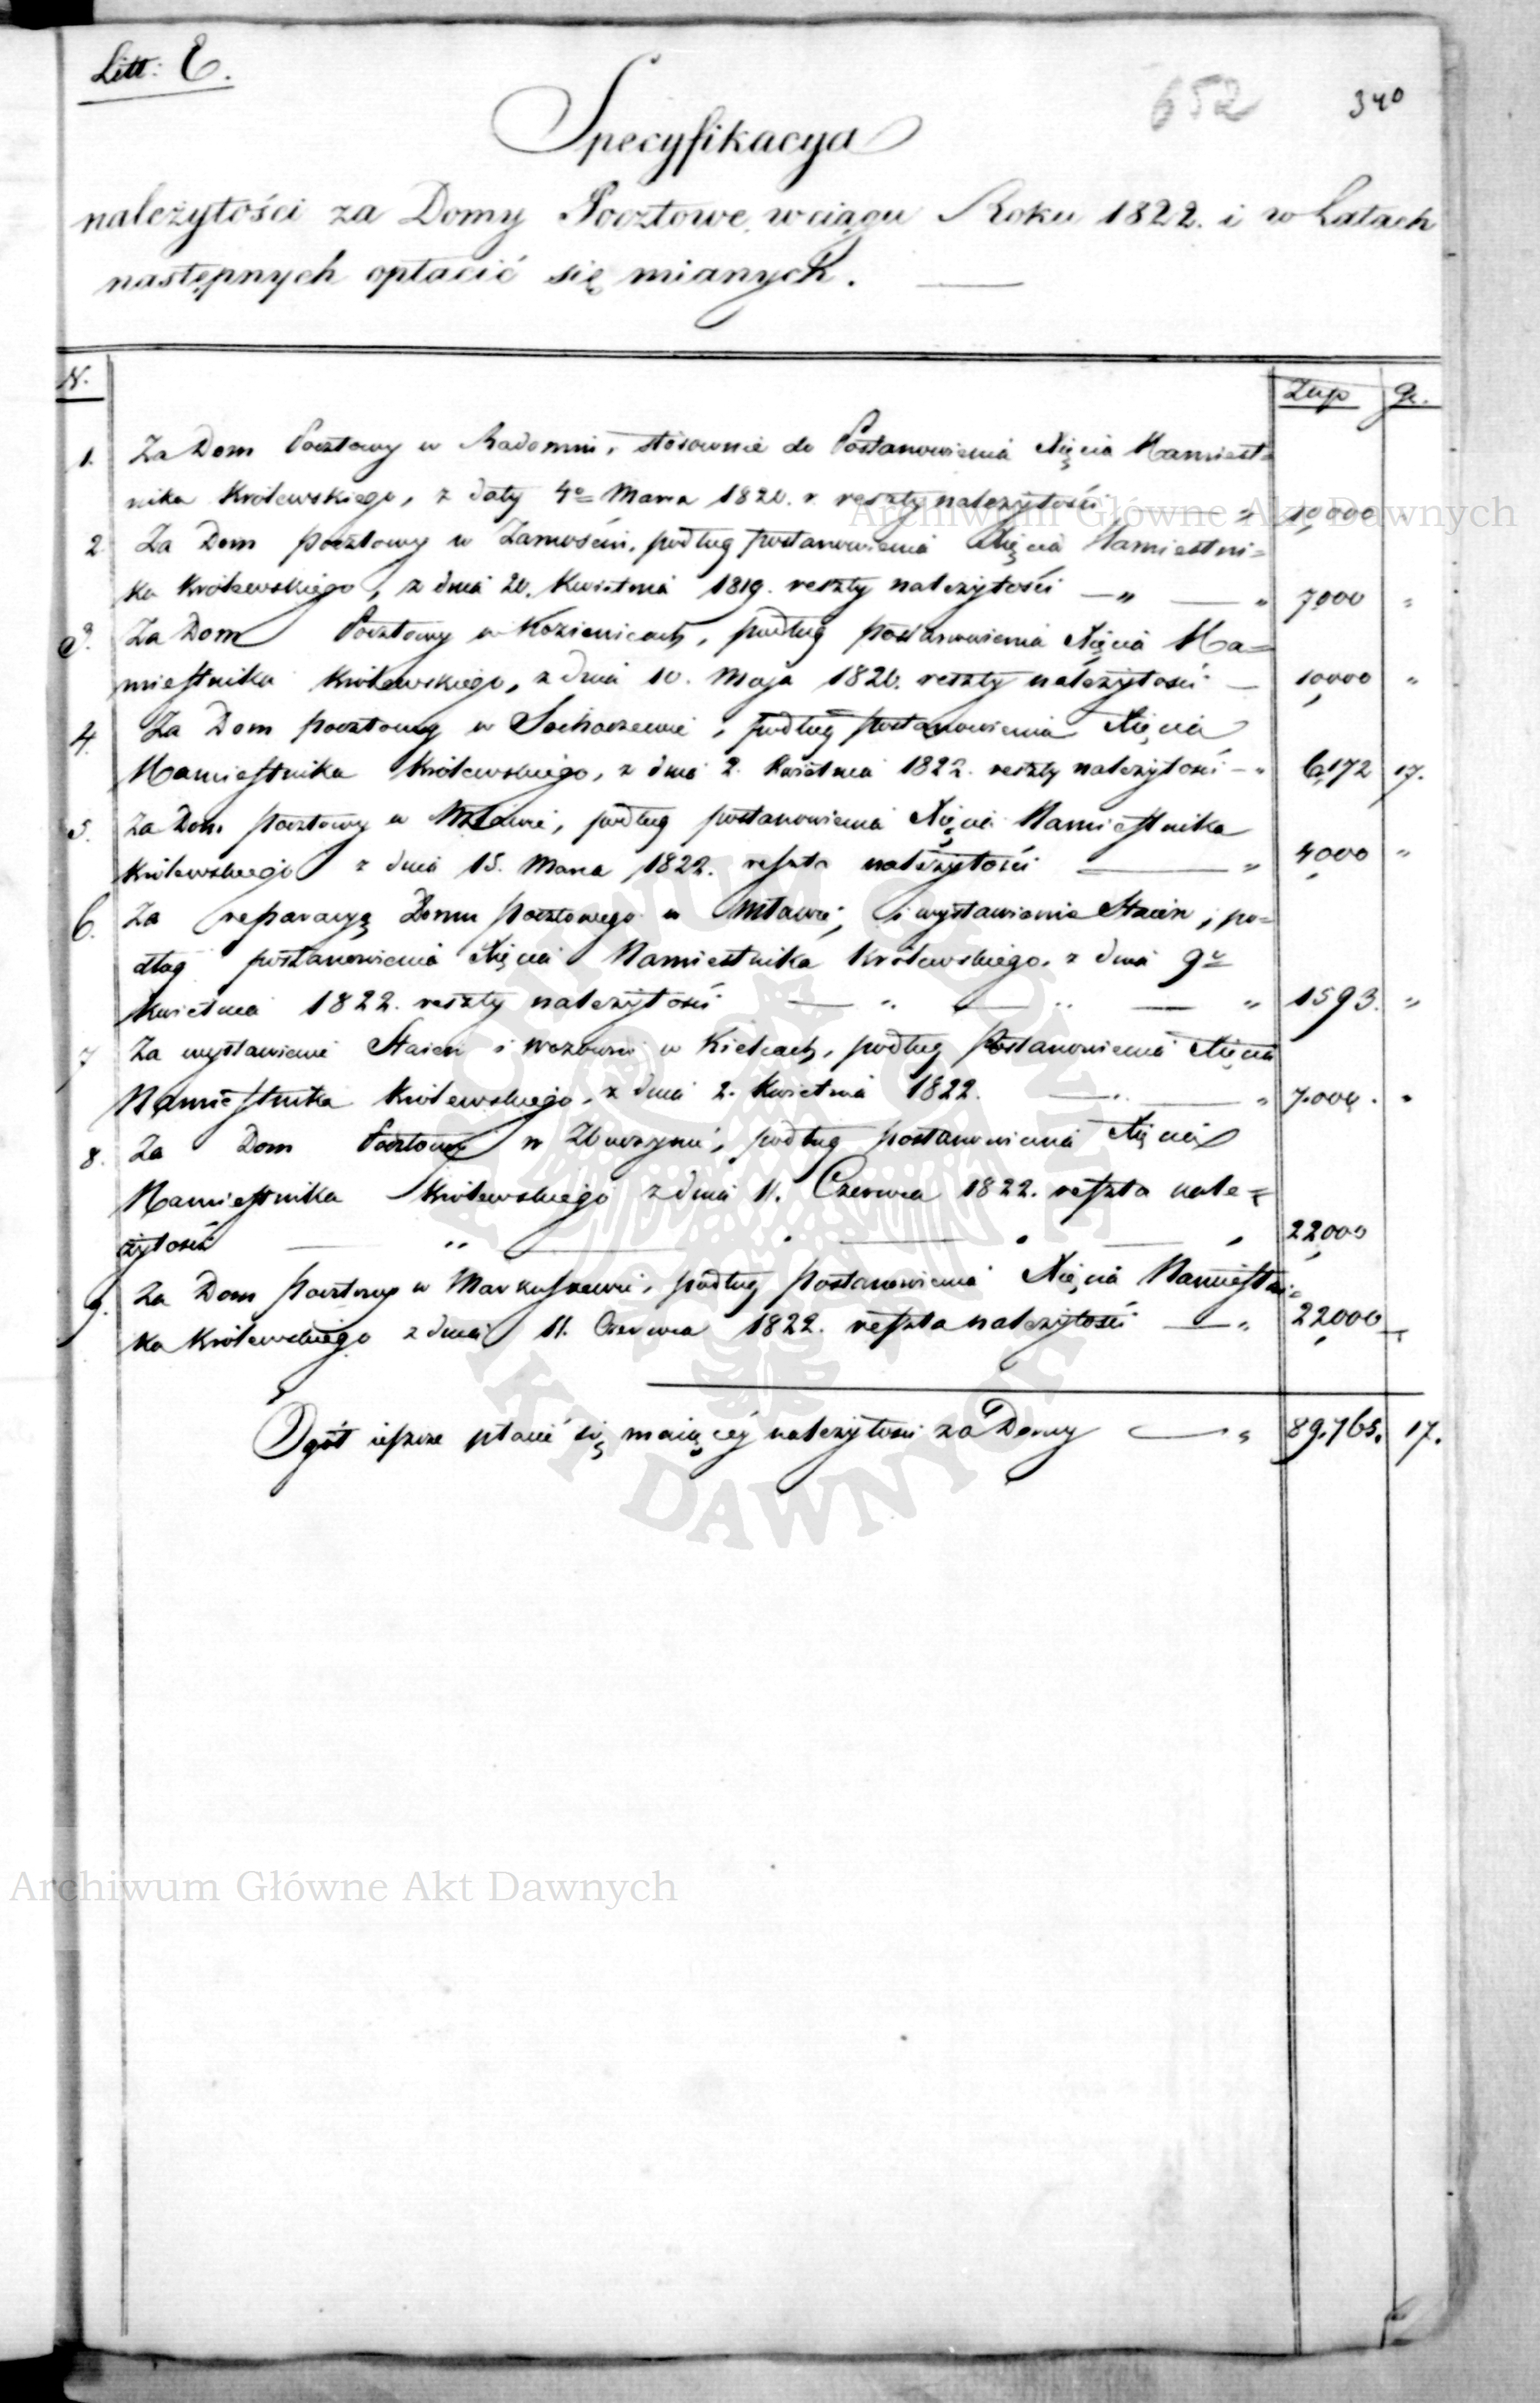 Litt: E.
652
340
Specyfikacya
należytości za Domy Pocztowe w ciągu Roku 1822. i w Latach
następnych opłacić się mianych.
N.
Złtp
gr.
1. Za Dom Pocztowy w Radomiu, stósownie do Postanowienia Xięcia Namiest=
nika Królewskiego, z daty 4o Marca 1820. r. reszty należytości — " 10,000
2 Za Dom pocztowy w Zamościu, podług postanowienia Xięcia Namiestni=
ka Królewskiego, z dnia 20. Kwietnia 1819. reszty należytości — " — " 7,000 "
3. Za Dom Pocztowy w Kozienicach, podług postanowienia Xięcia Na=
miestnika Królewskiego, z dnia 10. Maja 1820. reszty należytości — 10,000 "
4. Za Dom pocztowy w Sochaczewie, podług postanowienia Xięcia
Namiestnika Królewskiego, z dnia 2. Kwietnia 1822. reszty należytości — " 6,172 17.
5. Za Dom pocztowy w Mławie, podług postanowienia Xięcia Namiestnika
Królewskiego z dnia 15. Marca 1822. reszta należytości — " 4,000 "
6. Za reparacyą Domu pocztowego w Mławie, i wystawienie Staien, po=
dług postanowienia Xięcia Namiestnika Królewskiego, z dnia 9o
Kwietnia 1822. reszty należytości — " — " — " 1593. "
7 Za wystawienie Staien i wozowni w Kielcach, podług Postanowienia Xięcia
Namiestnika Królewskiego, z dnia 2. Kwietnia 1822. — " — " 7.000. "
8. Za Dom Pocztowy w Zbuczynie, podług postanowienia Xięcia
Namiestnika Królewskiego z dnia 11. Czerwca 1822. reszta nale=
żytości — " — " — " — " 22,000
9. Za Dom Pocztowy w Markuszewie, podług Postanowienia Xięcia Namiestni=
ka Królewskiego z dnia 11. Czerwca 1822. reszta należytości — " 22,000
Ogół ieszcze płacić się maiącéy należytości za Domy — " 89.765. 17.
Archiwum Główne Akt Dawnych
Archiwum Główne Akt Dawnych
ARCHIWUM GŁÓWNE AKT DAWNYCH